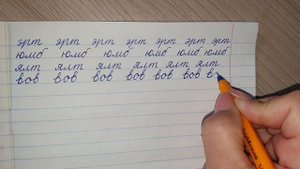 эрт эрт эрт эрт эрт эрт эрт
юмб юмб юмб юмб юмб юмб
ялт ялт ялт ялт ялт ялт
вов вов вов вов вов вов в